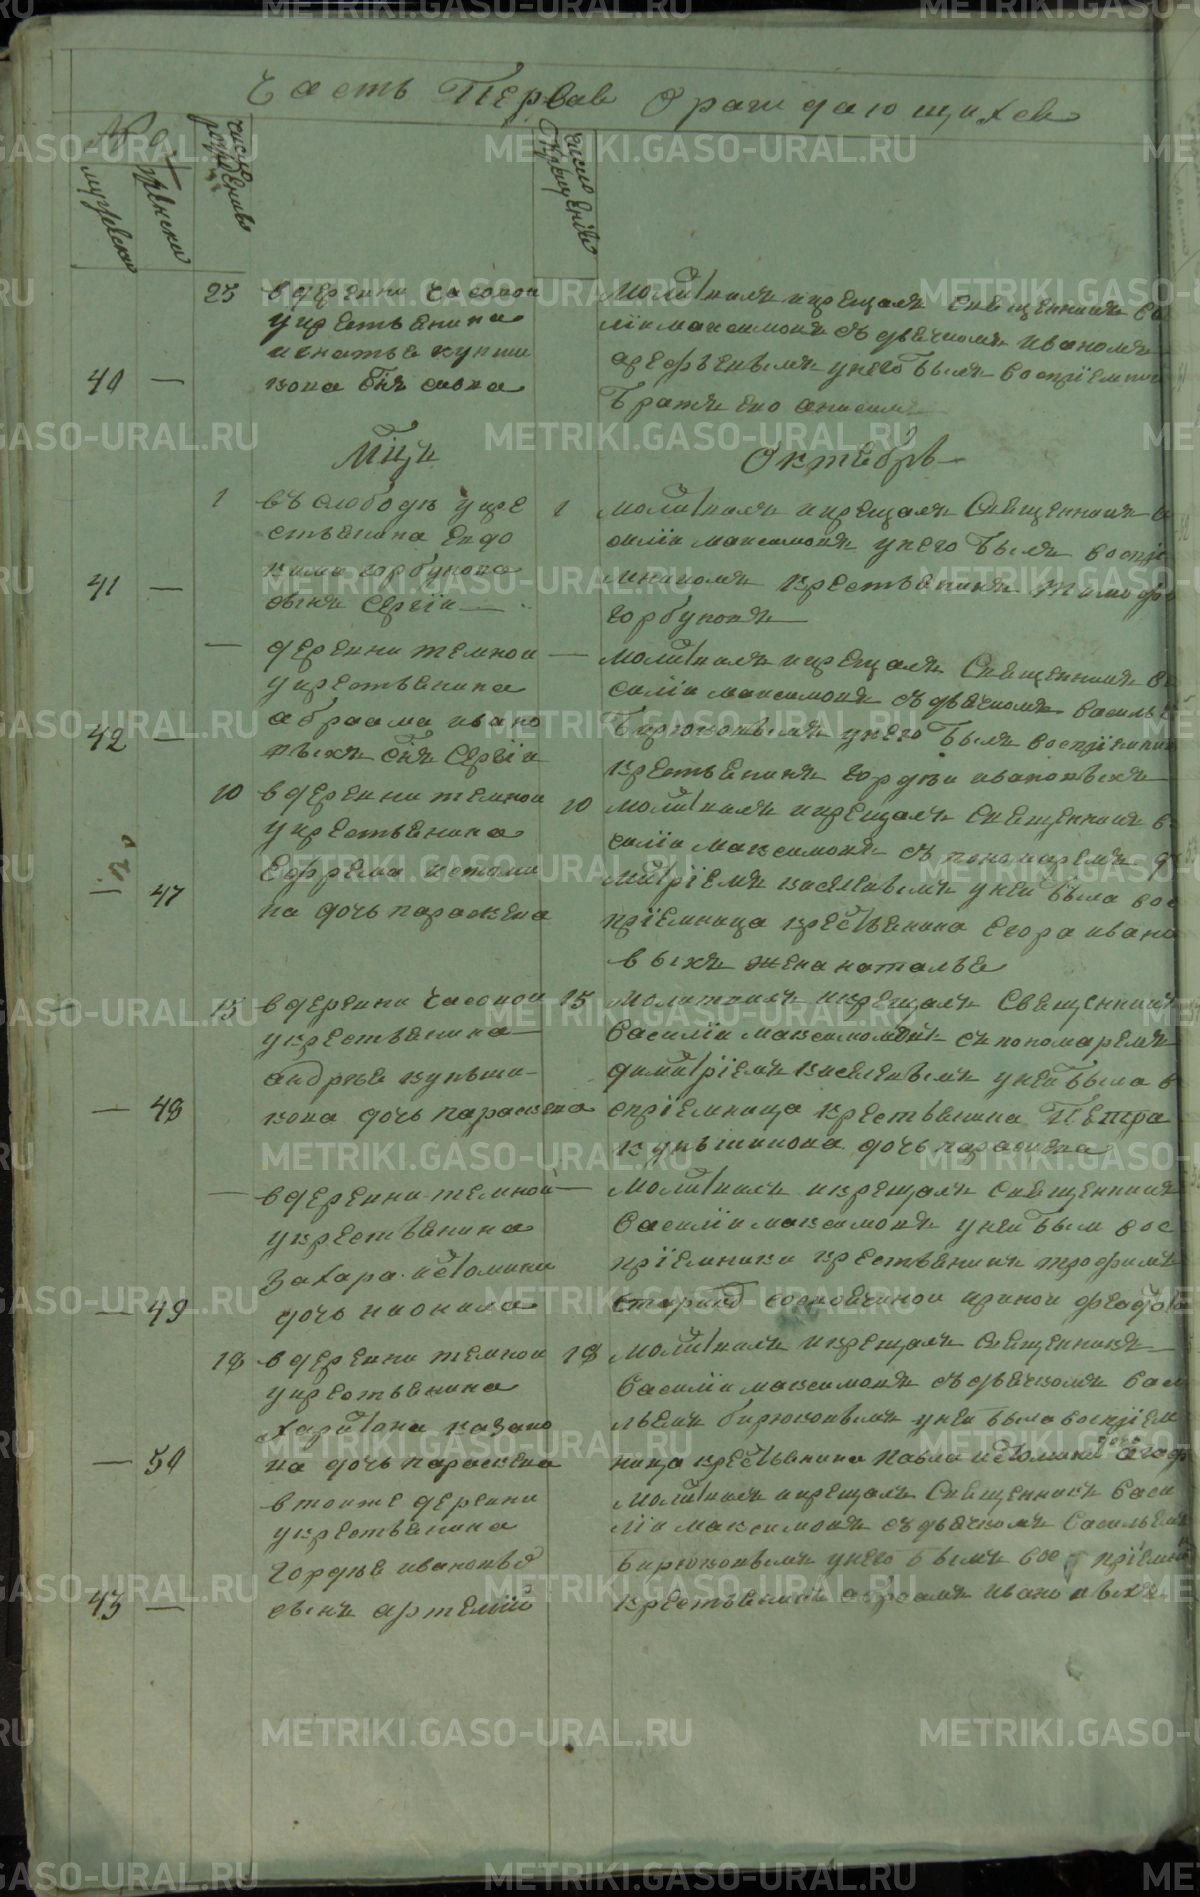 Часть Первая о раждающихся
№ да
мужески
женски
число рождения
число крещения
23 в деревни часовой
у крестьянина
игнатья купши
40 — кова сїнъ савва
Молитвилъ и крещалъ священникъ ва
силїи максимовъ съ дьячкомъ иваномъ
арефьевымъ у него былъ восприемник
братъ его анисимъ
Мцъ Октябрь
1 въ слободѣ у кре
стьянина евдо
кима горбунова
41 — сынъ сергїи
1 молитвилъ и крещалъ священникъ ва
силїи максимовъ у него былъ воспрїе
мникомъ крестьянинъ тимофе
горбуновъ
— деревни темной
у крестьянина
абраама ивано
42 — выхъ сїнъ сергїи
— молитвилъ и крещалъ священникъ ва
силїи максимовъ съ дьячкомъ василье
бирюковымъ у него былъ воспрїемник
крестьянинъ гордѣи ивановыхъ
10 в деревни темной
у крестьянина
ефрема истоми
— 47 на дочь параскева
10 молитвилъ и крещалъ священникъ ва
силїи максимовъ съ пономаремъ ди
митрїемъ киселевымъ у неи была вос
прїемница крестьянина егора ивано
выхъ жена наталья
15 в деревни часовой
у крестьянина
андрѣя купьши
— 48 кова дочь параскева
15 молитвилъ и крещалъ священникъ
василїи максимовъ съ пономаремъ
димитрїемъ киселевымъ у неи была в
спрїемница крестьянина Петра
купьшикова дочь параскева
— в деревни темной
у крестьянина
захара истомина
— 49 дочь неонила
— молитвилъ и крещалъ священникъ
василїи максимовъ у неи были вос
прїемники крестьянинъ трофимъ
стариковъ ириной федо
18 в деревни темной
у крестьянина
харитона казако
— 50 ва дочь параскева
18 молитвилъ и крещалъ священникъ
василїи максимовъ съ дьячкомъ васи
льемъ бирюковымъ у неи была воспрїем
ница крестьянина павла истомина дочь агаф
в тоиже деревни
у крестьянина
гордѣя ивановых
43 — сынъ артемїй
молитвилъ и крещалъ священникъ васи
лїи максимовъ съ дьячкомъ васильемъ
бирюковымъ у него былъ вос прїемн
крестьянинъ абраамъ ивановыхъ
METRIKI.GASO-URAL.RU